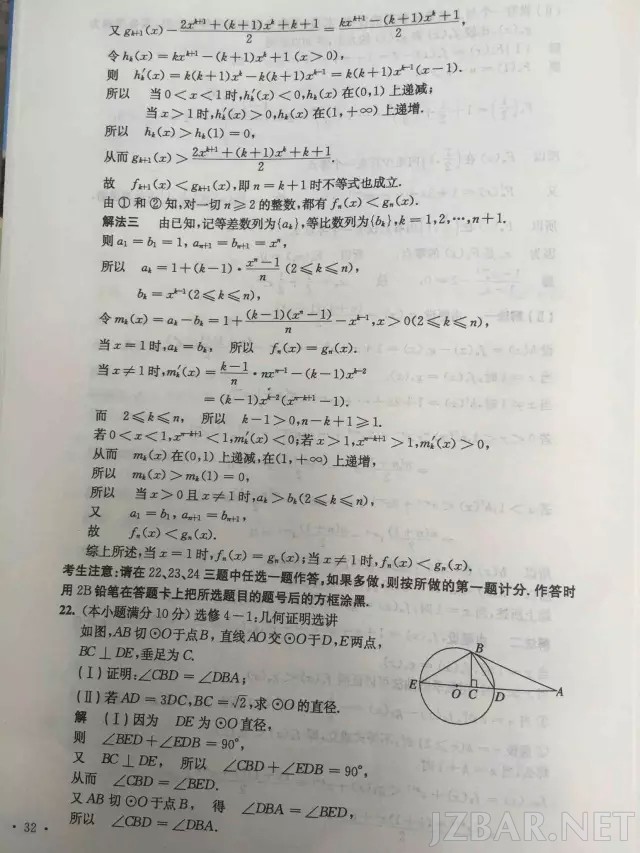 又 gₖ₊₁(x)−(2xᵏ⁺¹+(k+1)xᵏ+k+1)/2=(kxᵏ⁺¹−(k+1)xᵏ+1)/2,
令 hₖ(x)=kxᵏ⁺¹−(k+1)xᵏ+1 (x>0),
则 h′ₖ(x)=k(k+1)xᵏ−k(k+1)xᵏ⁻¹=k(k+1)xᵏ⁻¹(x−1).
所以 当0<x<1时,h′ₖ(x)<0,hₖ(x)在(0,1)上递减;
当x>1时,h′ₖ(x)>0,hₖ(x)在(1,+∞)上递增.
所以 hₖ(x)>hₖ(1)=0,
从而gₖ₊₁(x)>(2xᵏ⁺¹+(k+1)xᵏ+k+1)/2.
故 fₖ₊₁(x)<gₖ₊₁(x),即n=k+1时不等式也成立.
由①和②知,对一切n≥2的整数,都有fₙ(x)<gₙ(x).
解法三 由已知,记等差数列为{aₖ},等比数列为{bₖ},k=1,2,…,n+1.
则a₁=b₁=1, aₙ₊₁=bₙ₊₁=xⁿ,
所以 aₖ=1+(k−1)·(xⁿ−1)/n (2≤k≤n),
bₖ=xᵏ⁻¹(2≤k≤n),
令mₖ(x)=aₖ−bₖ=1+(k−1)(xⁿ−1)/n−xᵏ⁻¹,x>0(2≤k≤n),
当x=1时,aₖ=bₖ, 所以 fₙ(x)=gₙ(x).
当x≠1时,m′ₖ(x)=(k−1)/n·nxⁿ⁻¹−(k−1)xᵏ⁻²
=(k−1)xᵏ⁻²(xⁿ⁻ᵏ⁺¹−1).
而 2≤k≤n, 所以 k−1>0,n−k+1≥1.
若0<x<1,xⁿ⁻ᵏ⁺¹<1,m′ₖ(x)<0;若x>1,xⁿ⁻ᵏ⁺¹>1,m′ₖ(x)>0,
从而 mₖ(x)在(0,1)上递减,在(1,+∞)上递增,
所以 mₖ(x)>mₖ(1)=0,
所以 当x>0且x≠1时,aₖ>bₖ(2≤k≤n),
又 a₁=b₁, aₙ₊₁=bₙ₊₁,
故 fₙ(x)<gₙ(x).
综上所述,当x=1时,fₙ(x)=gₙ(x);当x≠1时,fₙ(x)<gₙ(x).
考生注意:请在22、23、24三题中任选一题作答,如果多做,则按所做的第一题计分.作答时
用2B铅笔在答题卡上把所选题目的题号后的方框涂黑.
22. (本小题满分10分)选修4−1:几何证明选讲
如图,AB切⊙O于点B,直线AO交⊙O于D,E两点,
BC⊥DE,垂足为C.
(Ⅰ)证明:∠CBD=∠DBA;
(Ⅱ)若AD=3DC,BC=√2,求⊙O的直径.
B
E
O
C
D
A
解 (Ⅰ)因为 DE为⊙O直径,
则 ∠BED+∠EDB=90°,
又 BC⊥DE, 所以 ∠CBD+∠EDB=90°,
从而 ∠CBD=∠BED.
又AB切⊙O于点B, 得 ∠DBA=∠BED,
所以 ∠CBD=∠DBA.
· 32 ·
JZBAR.NET